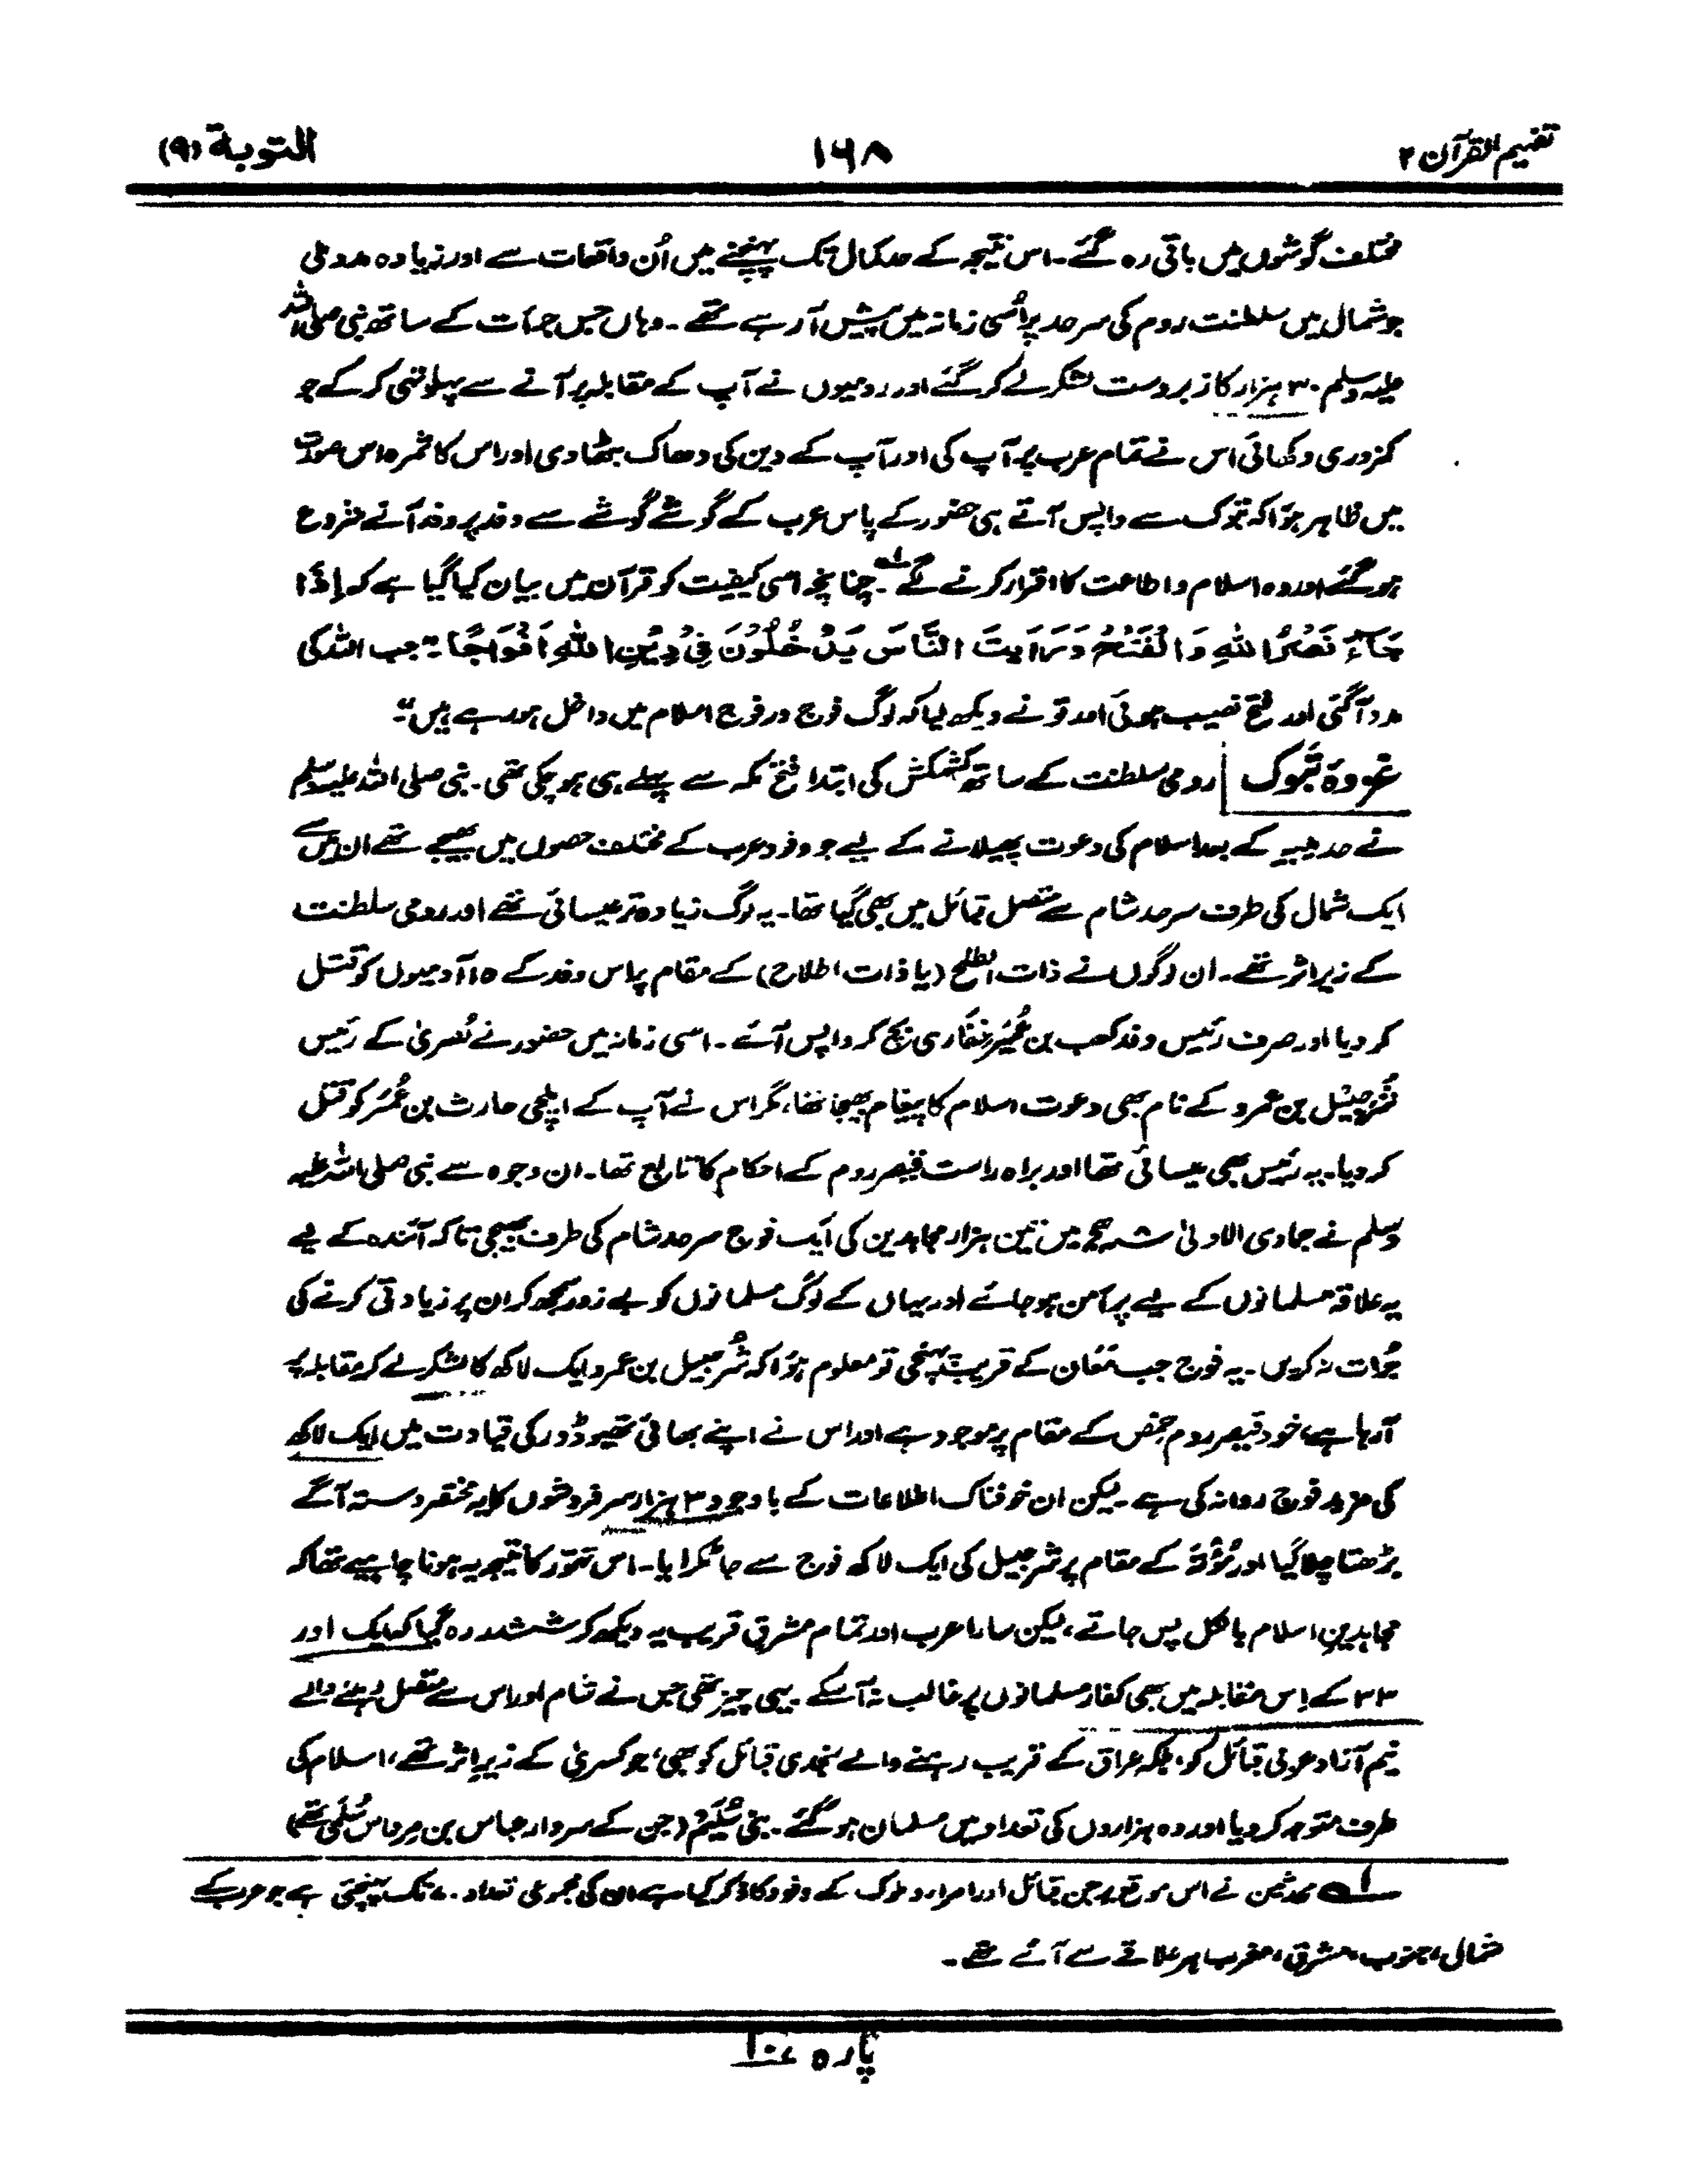 تفہیم القرآن ۲
۱۶۸
التوبۃ (۹)
مختلف گوشوں میں باقی رہ گئے۔ اس نتیجہ کے حد کمال تک پہنچنے میں اُن واقعات سے اور زیادہ مدد ملی
جو شمال میں سلطنت روم کی سرحد پر اُسی زمانہ میں پیش آ رہے تھے۔ وہاں جس جرأت کے ساتھ نبی صلی اللہ
علیہ وسلم ۳۰ ہزار کا زبردست لشکر لے کر گئے اور رومیوں نے آپ کے مقابلہ پر آنے سے پہلوتہی کر کے جو
کمزوری دکھائی اس نے تمام عرب پر آپ کی اور آپ کے دین کی دھاک بٹھا دی اور اس کا ثمرہ اس صورت
میں ظاہر ہوا کہ تبوک سے واپس آتے ہی حضور کے پاس عرب کے گوشے گوشے سے وفد پر وفد آنے شروع
ہو گئے اور وہ اسلام و اطاعت کا اقرار کرنے لگے۔ لہ چنانچہ اسی کیفیت کو قرآن میں بیان کیا گیا ہے کہ اِذَا
جَآءَ نَصْرُ اللّٰهِ وَالْفَتْحُ وَرَاَيْتَ النَّاسَ يَدْخُلُوْنَ فِيْ دِيْنِ اللّٰهِ اَفْوَاجًا ”جب اللہ کی
مدد آ گئی اور فتح نصیب ہوئی اور تو نے دیکھ لیا کہ لوگ فوج در فوج اسلام میں داخل ہو رہے ہیں“۔
غزوۂ تبوک | رومی سلطنت کے ساتھ کشمکش کی ابتدا فتح مکہ سے پہلے ہی ہو چکی تھی۔ نبی صلی اللہ علیہ وسلم
نے حدیبیہ کے بعد اسلام کی دعوت پھیلانے کے لیے جو وفود عرب کے مختلف حصوں میں بھیجے تھے ان میں سے
ایک شمال کی طرف سرحد شام سے متصل قبائل میں بھی گیا تھا۔ یہ لوگ زیادہ تر عیسائی تھے اور رومی سلطنت
کے زیر اثر تھے۔ ان لوگوں نے ذات الطلح (یا ذات اطلاح) کے مقام پر اس وفد کے ۱۵ آدمیوں کو قتل
کر دیا اور صرف رئیس وفد کعب بن عُمَیر غِفَاری بچ کر واپس آئے۔ اسی زمانہ میں حضور نے بُصریٰ کے رئیس
شُرَحبِیْل بن عمرو کے نام بھی دعوت اسلام کا پیغام بھیجا تھا، مگر اس نے آپ کے ایلچی حارث بن عُمَیر کو قتل
کر دیا۔ یہ رئیس بھی عیسائی تھا اور براہ راست قیصر روم کے احکام کا تابع تھا۔ ان وجوہ سے نبی صلی اللہ علیہ
وسلم نے جمادی الاولیٰ سنہ ۸ھ میں تین ہزار مجاہدین کی ایک فوج سرحد شام کی طرف بھیجی تاکہ آئندہ کے لیے
یہ علاقہ مسلمانوں کے لیے پرامن ہو جائے اور یہاں کے لوگ مسلمانوں کو بے زور سمجھ کر ان پر زیادتی کرنے کی
جُرأت نہ کریں۔ یہ فوج جب مَعَان کے قریب پہنچی تو معلوم ہوا کہ شُرحبیل بن عمرو ایک لاکھ کا لشکر لے کر مقابلہ پر
آ رہا ہے، خود قیصر روم حِمص کے مقام پر موجود ہے اور اس نے اپنے بھائی تھیوڈور کی قیادت میں ایک لاکھ
کی مزید فوج روانہ کی ہے۔ لیکن ان خوفناک اطلاعات کے باوجود ۳ ہزار سرفروشوں کا یہ مختصر دستہ آگے
بڑھتا چلا گیا اور مُؤْتَہ کے مقام پر شرحبیل کی ایک لاکھ فوج سے جا ٹکرایا۔ اس تہوّر کا نتیجہ یہ ہونا چاہیے تھا کہ
مجاہدینِ اسلام بالکل پس جاتے، لیکن سارا عرب اور تمام مشرق قریب یہ دیکھ کر ششدر رہ گیا کہ ایک اور
۳۳ کے اِس مقابلہ میں بھی کفار مسلمانوں پر غالب نہ آ سکے۔ یہی چیز تھی جس نے شام اور اس سے متصل رہنے والے
نیم آزاد عربی قبائل کو، بلکہ عراق کے قریب رہنے والے نجدی قبائل کو بھی، جو کسریٰ کے زیرِ اثر تھے، اسلام کی
طرف متوجہ کر دیا اور وہ ہزاروں کی تعداد میں مسلمان ہو گئے۔ بنی سُلَیْم (جن کے سردار عباس بن مِرداس سُلَمی تھے)
لہ محدثین نے اس موقع پر جن قبائل اور امراء و ملوک کے وفود کا ذکر کیا ہے ان کی مجموعی تعداد ۷۰ تک پہنچتی ہے جو عرب کے
شمالی، جنوب، مشرق، مغرب ہر علاقے سے آئے تھے۔
پارہ ۱۰